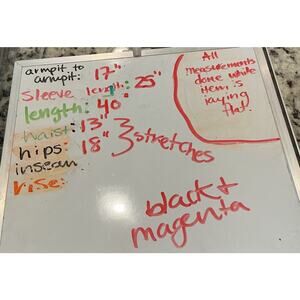 armpit to
armpit: 17"
Sleeve length: 25"
length: 40"
waist: 13"
hips: 18"
stretches
inseam
rise:
All
measurements
done while
item is
laying
flat.
black +
magenta